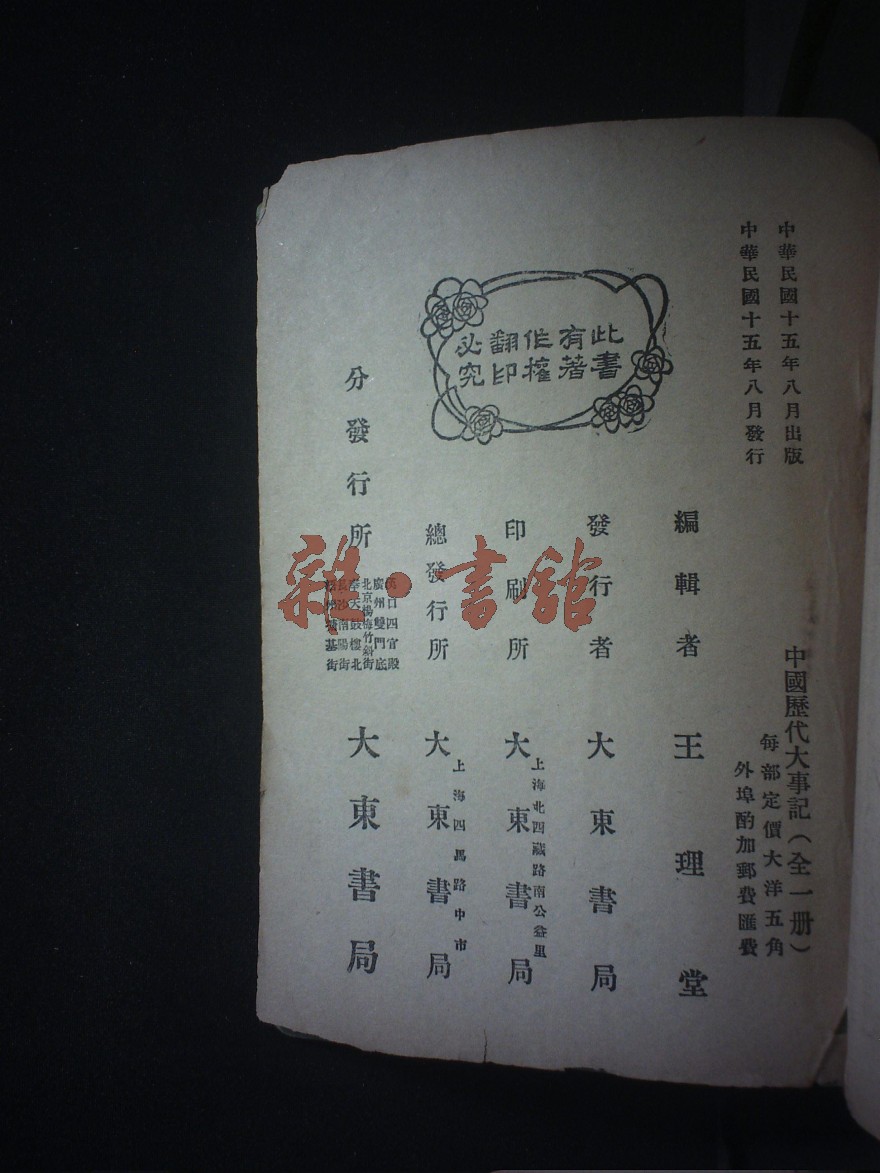 中華民國十五年八月出版
中華民國十五年八月發行
中國歷代大事記（全一册）
每部定價大洋五角
外埠酌加郵費匯費
編輯者 王理堂
發行者 大東書局
印刷所 上海北四藏路南公益里 大東書局
總發行所 上海四馬路中市 大東書局
分發行所
口四官殿
廣州雙門底
北京楊梅竹斜街
奉天鼓樓北
長沙南陽街
大東書局
此書
有著
作權
翻印
必究
雜·書館